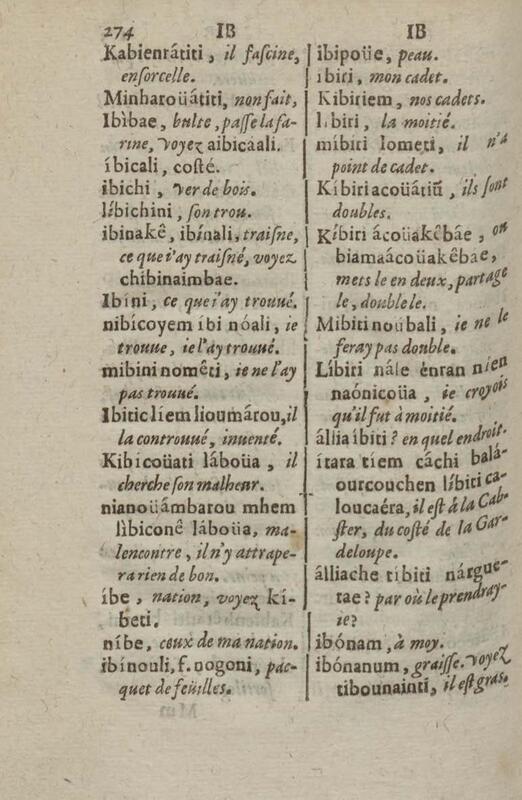 274 IB IB
Kabienrátiti, il faſcine,
enſorcelle.
Minharoüátiti, non fait,
Ibìbae, bulte, paſſe la fa-
rine, voyez aibicaali.
íbicali, coſté.
ibichi, ver de bois.
líbichini, ſon trou.
ibinakê, ibínali, traiſne,
ce que i'ay traiſné, voyez
chibinaimbae.
Ibíni, ce que i'ay trouué.
nibícoyem íbi nóali, ie
trouue, ie l'ay trouué.
mibini nomêti, ie ne l'ay
pas trouué.
Ibiticlíem lioumárou, il
la controuué, inuenté.
Kibícoüati láboüa, il
cherche ſon malheur.
nianoüámbarou mhem
lìbiconê láboüa, ma-
lencontre, il n'y attrape-
ra rien de bon.
íbe, nation, voyez kí-
beti.
níbe, ceux de ma nation.
ibínouli, f. oogoni, pac-
quet de feüilles.
ibipoüe, peau.
ibiri, mon cadet.
Kibiriem, nos cadets.
líbiri, la moitié.
míbiri lometi, il n'a
point de cadet.
Kíbiri acoüátiũ, ils ſont
doubles.
Kíbiri ácoüakêbáe, ou
biamaácouakêbae,
mets le en deux, partage
le, double le.
Mibiti noubali, ie ne le
feray pas double.
Líbiri nále énran nien
naónicoüa, ie croyois
qu'il fut à moitié.
állia íbiti? en quel endroit.
ítara tiem cáchi balá-
ourcouchen líbiti ca-
loucaéra, il eſt à la Cab-
ſter, du coſté de la Gar-
deloupe.
álliache tibiti nárgue-
tae? par où le prendray-
ie?
ibónam, à moy.
ibónanum, graiſſe. voyez
tibounaintí, il eſt gras.